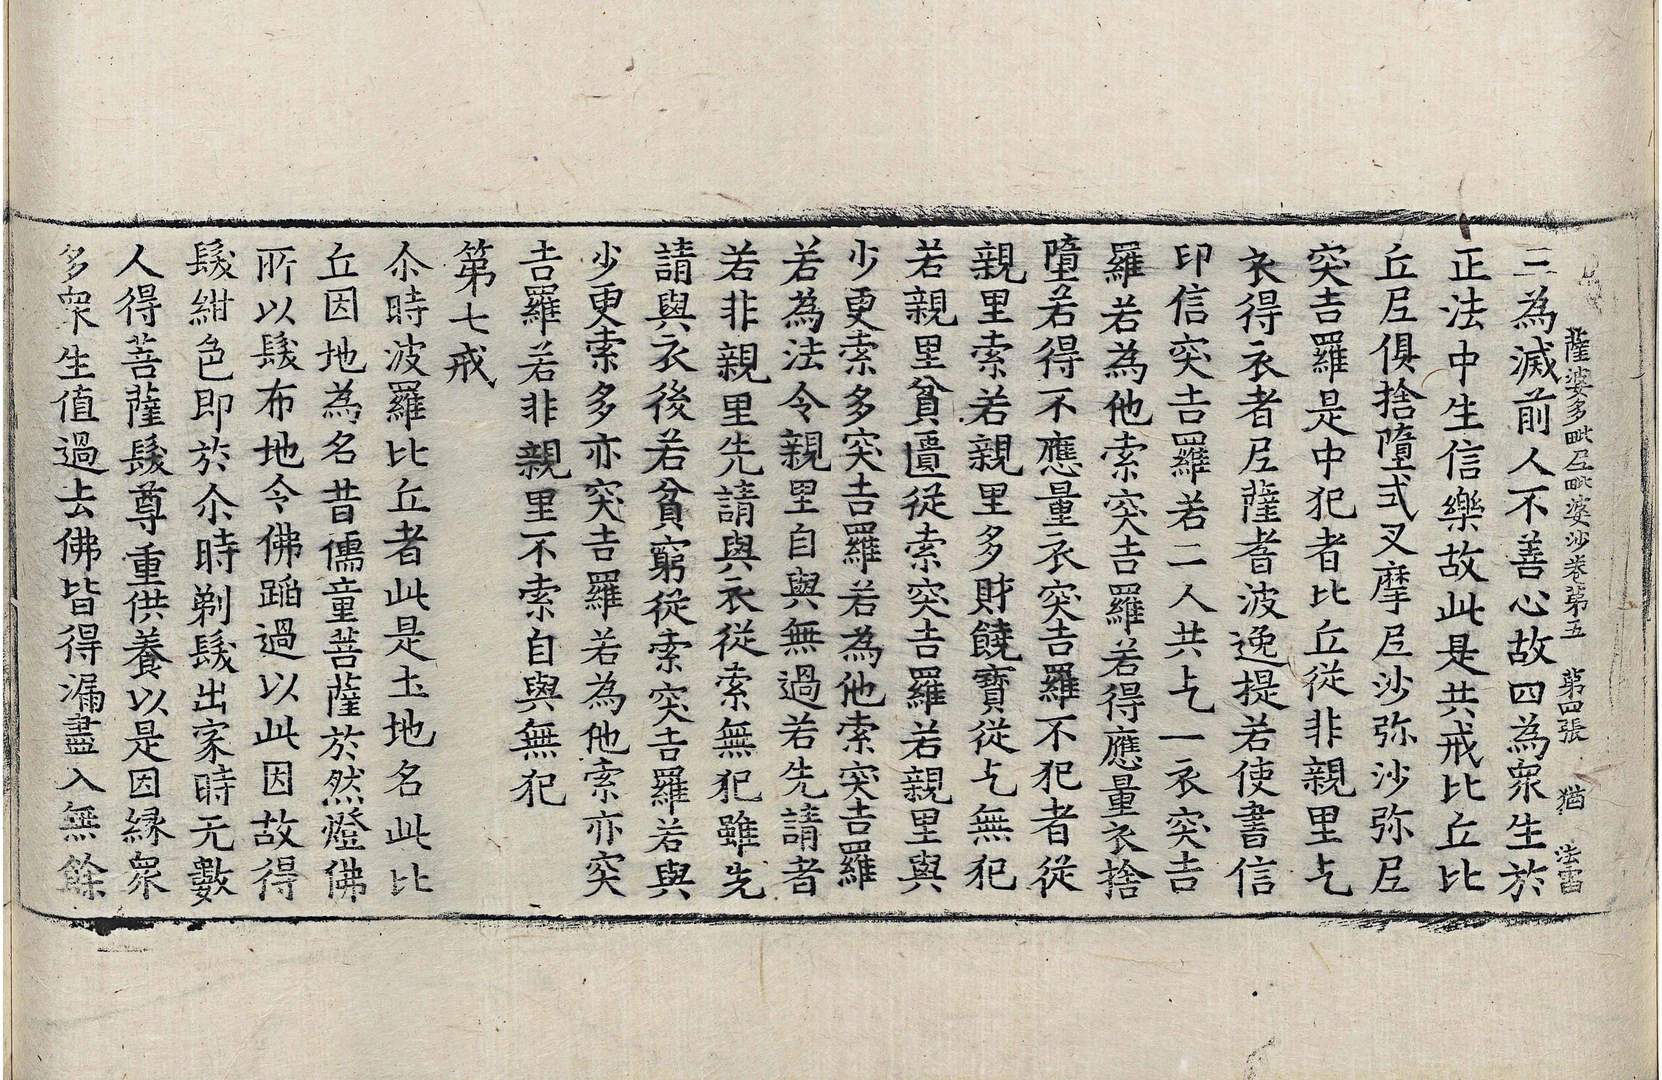 薩婆多毗尼毗婆沙卷第五　第四張　猶　法雷
三為滅前人不善心故四為衆生於
正法中生信樂故此是共戒比丘比
丘尼俱捨墮式叉摩尼沙弥沙弥尼
突吉羅是中犯者比丘從非親里乞
衣得衣者尼薩耆波逸提若使書信
印信突吉羅若二人共乞一衣突吉
羅若為他索突吉羅若得應量衣捨
墮若得不應量衣突吉羅不犯者從
親里索若親里多財饒寶從乞無犯
若親里貧匱從索突吉羅若親里與
少更索多突吉羅若為他索突吉羅
若為法令親里自與無過若先請者
若非親里先請與衣從索無犯雖先
請與衣後若貧窮從索突吉羅若與
少更索多亦突吉羅若為他索亦突
吉羅若非親里不索自與無犯
第七戒
尒時波羅比丘者此是土地名此比
丘因地為名昔儒童菩薩於然燈佛
所以髮布地令佛蹈過以此因故得
髮紺色即於尒時剃髮出家時无數
人得菩薩髮尊重供養以是因緣衆
多衆生值過去佛皆得漏盡入無餘